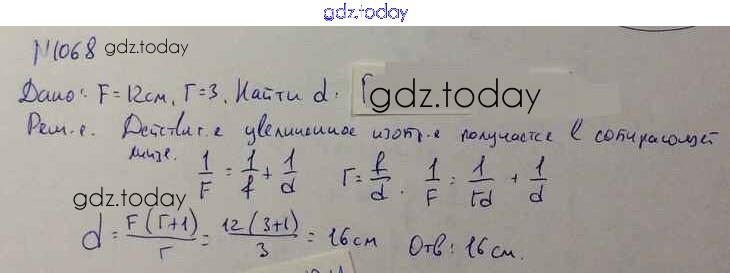 gdz.today
N1068 gdz.today
Дано: F = 12 см, Г = 3. Найти d.
gdz.today
Реш-е. Действит-е увеличенное изобр-е получается в собирающей
линзе. 1/F = 1/f + 1/d Г = f/d. 1/F = 1/Гd + 1/d
gdz.today
d = F(Г+1)/Г = 12(3+1)/3 = 16 см Отв: 16 см.